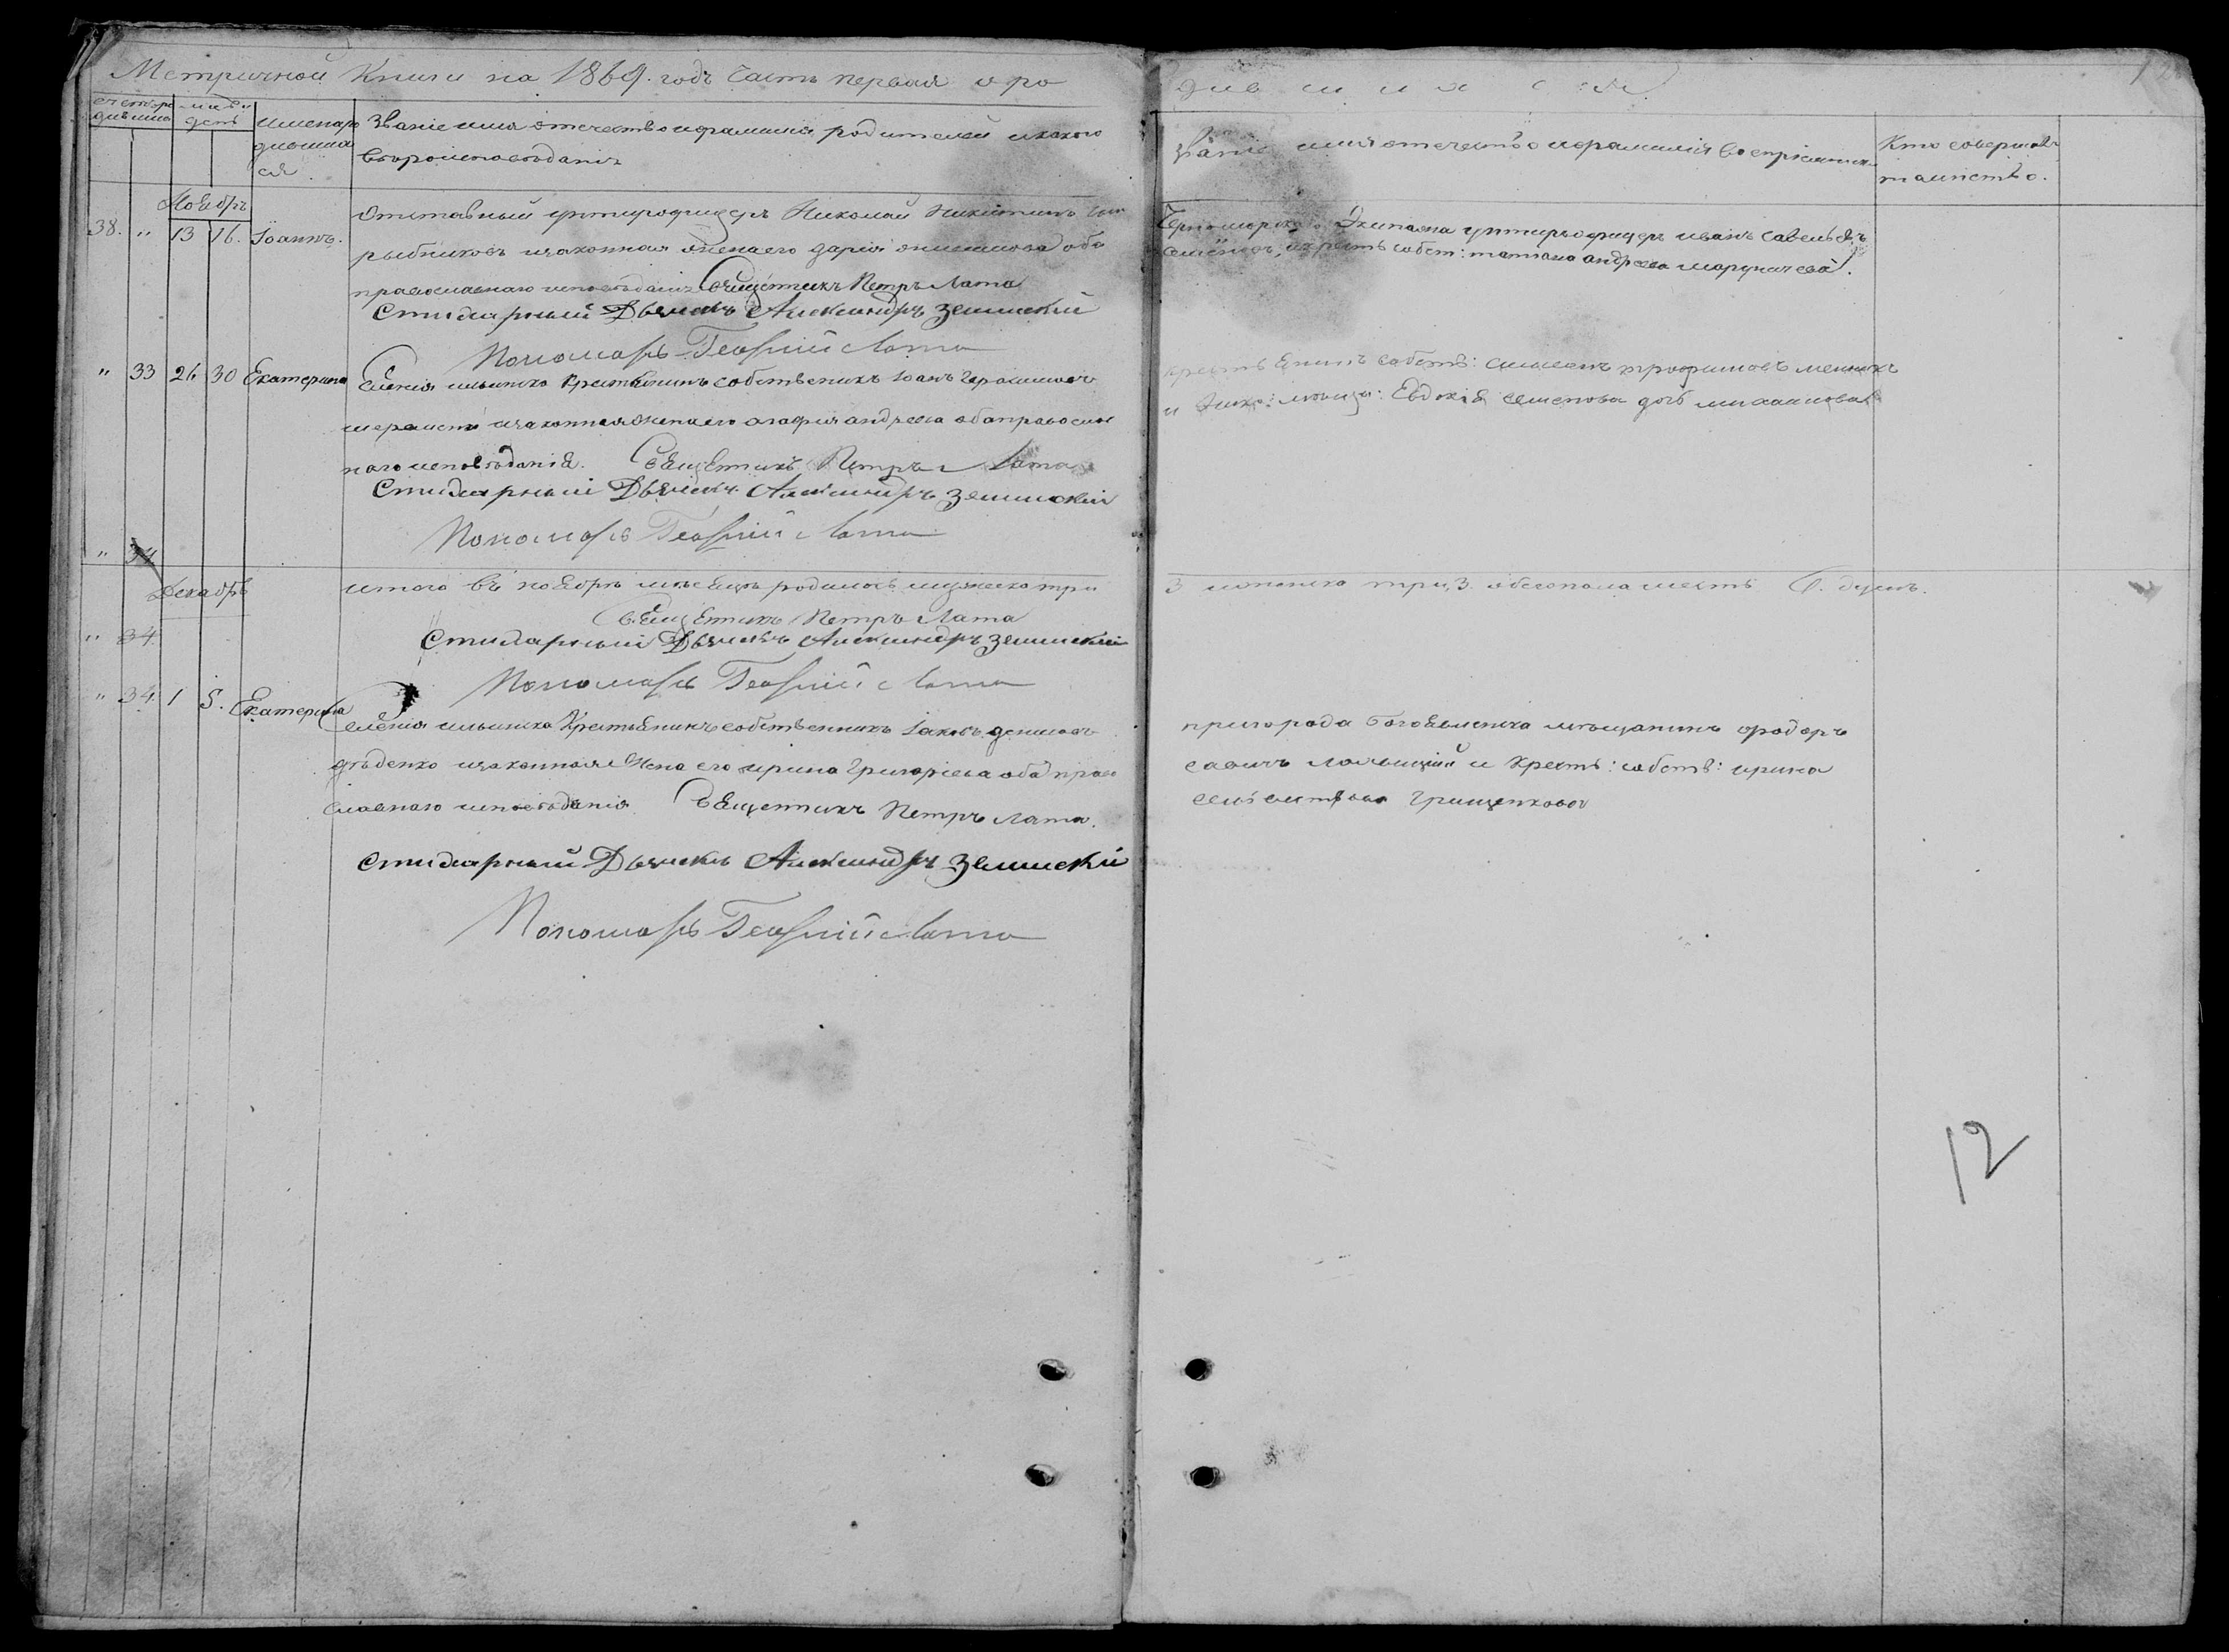 Метричной Книги на 1869. годъ Часть первая о ро
дившихся
счетъ ро дившихся
мѣсяцъ и день
имена родившихся
Званіе имя отечество и фамилія родителей и какого
вѣроисповѣданія
Званіе имя отечество и фамилія воспріемниковъ
Кто совершалъ
таинство.
Ноябрь
38. " 13 16. Іоаннъ.
Отставный унтерофицеръ Николай Никитинъ
рыбниковъ изаконная жена его дарія онисимова оба
православнаго исповѣданія Священникъ Петръ Лата
Стихарный Дьячекъ Александръ Зелинскій
Пономарь Георгій Лата
Черноморскаго Экипажа унтерьофицеръ иванъ савельевъ
семёновъ, икресть: собст: татіана андреева
" 33 26 30 Екатерина
Селенія ильинка Крестьянинъ собственникъ Іоанъ Герасимовъ
изаконная жена его агафія андреева оба православ
наго исповѣданія. Священникъ Петръ Лата
Стихарный Дьячекъ Александръ Зелинскій
Пономарь Георгій Лата
крестьянинъ собств: трофимовъ
и Евдокія семенова дочь
" 34
Декабрь
итого въ ноябрѣ мѣсяцѣ родилось мужеска три
3 женска три, 3. обоего пола шесть 6. душъ.
Священникъ Петръ Лата
" 34
Стихарный Дьячекъ Александръ Зелинскій
Пономарь Георгій Лата
" 34 1 5. Екатерина
Селенія ильинка Крестьянинъ собственникъ Іаковъ денисовъ
дѣденко изаконная Жена его ирина Григоріева оба право
славнаго исповѣданія Священникъ Петръ Лата.
Стихарный Дьячекъ Александръ Зелинскій
Пономарь Георгій Лата
пригорода Богоявленска мѣщанинъ фодоръ
савичъ и Кресть: собств: ирина
Грищенкова
12